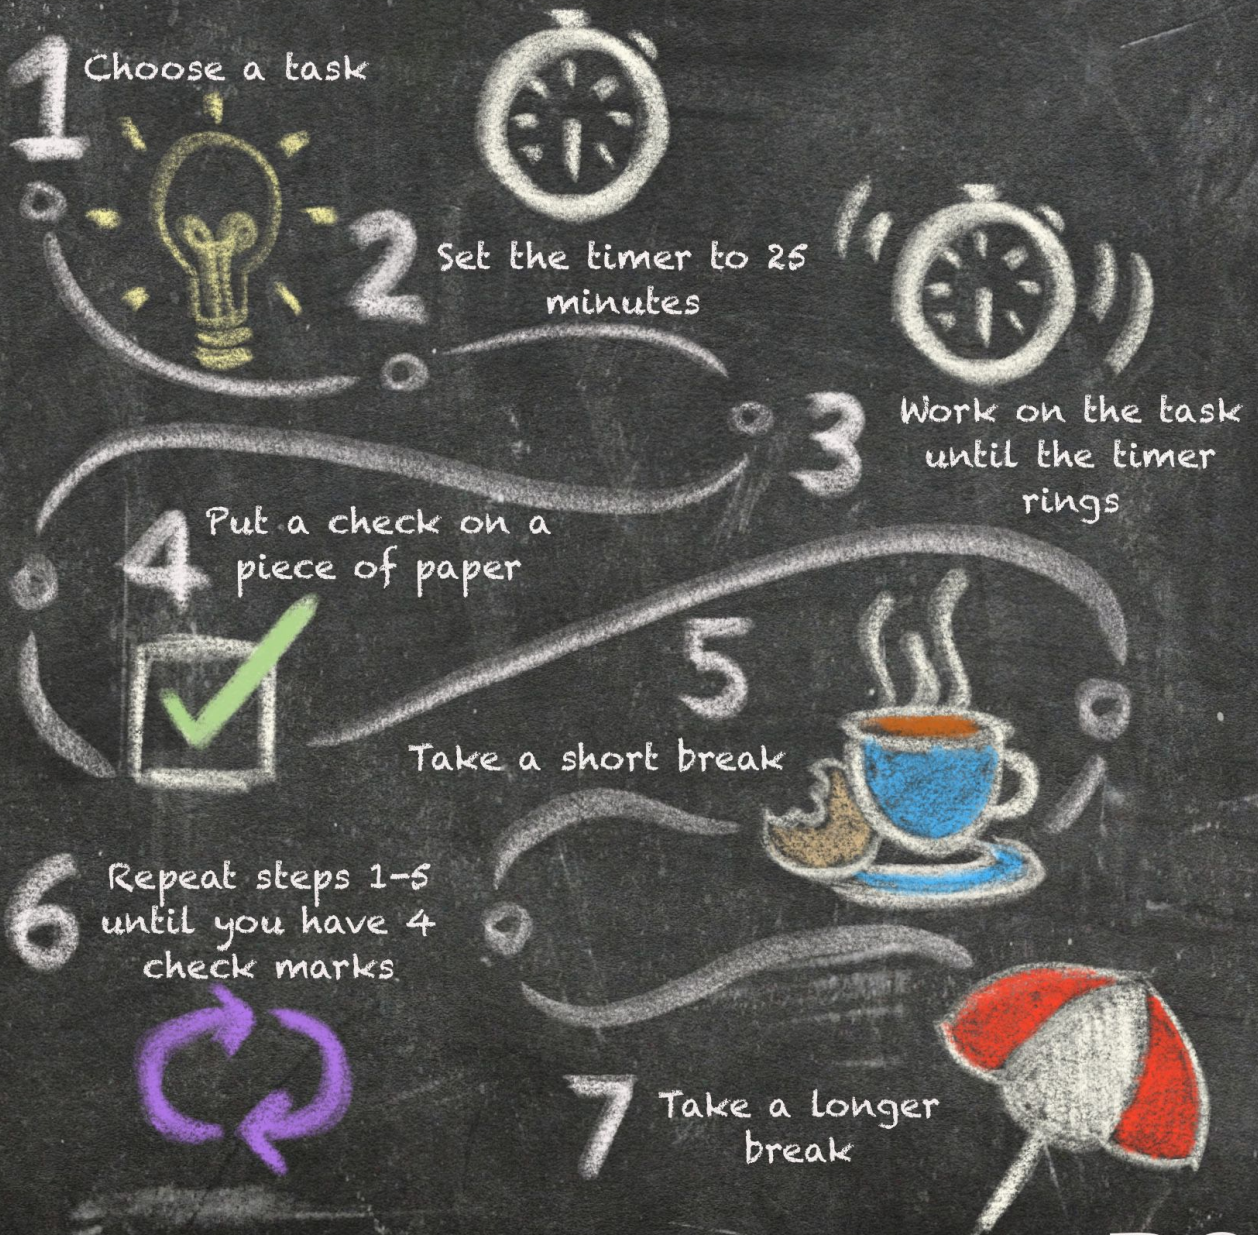 1 Choose a task
2 Set the timer to 25
minutes
3 Work on the task
until the timer
rings
4 Put a check on a
piece of paper
5
Take a short break
6 Repeat steps 1-5
until you have 4
check marks
7 Take a longer
break